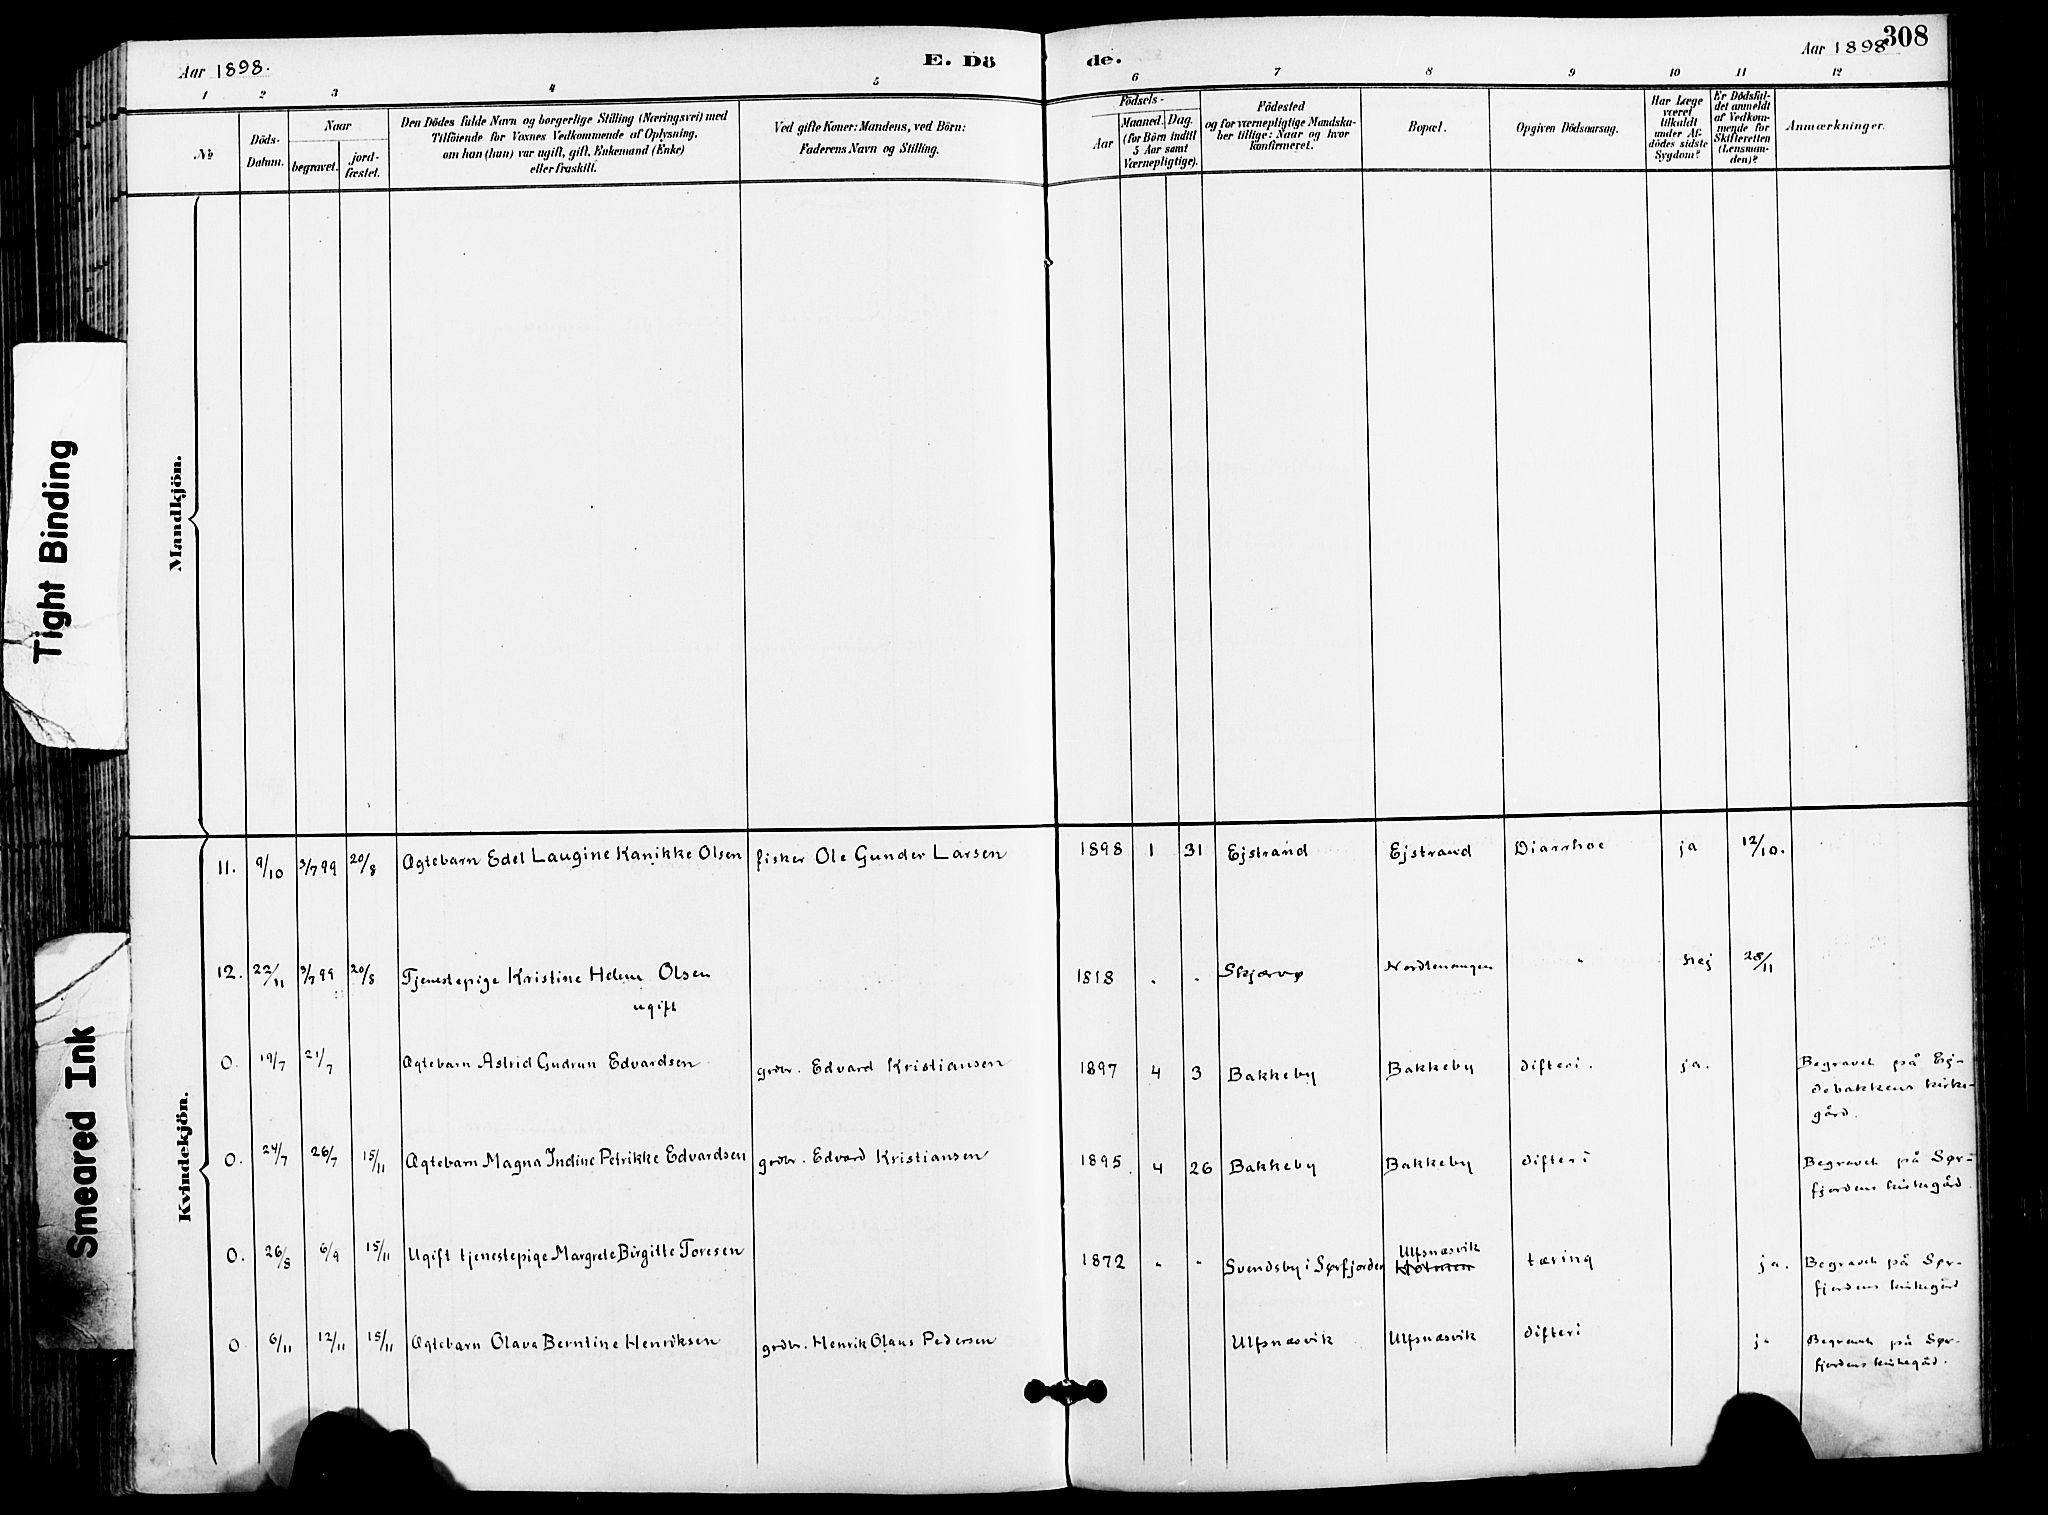 308
Aar 1898.
E. Dö
de.
Aar 1898
1 2 3 4 5 6 7 8 9 10 11 12
No
Döds-
Datum.
Naar
begravet.
jord-
fæstet.
Den Dödes fulde Navn og borgerlige Stilling (Næringsvei) med
Tilföiende for Voxnes Vedkommende af Oplysning,
om han (hun) var ugift, gift, Enkemand (Enke)
eller fraskilt.
Ved gifte Koner: Mandens, ved Börn:
Faderens Navn og Stilling.
Födsels-
Aar
Maaned. Dag.
(for Börn indtil
5 Aar samt
Værnepligtige).
Födested
og for værnepligtige Mandska-
ber tillige: Naar og hvor
konfirmeret.
Bopæl.
Opgiven Dödsaarsag.
Har Læge
været
tilkaldt
under Af-
dödes sidste
Sygdom?
Er Dödsfal-
det anmeldt
af Vedkom-
mende for
Skifteretten
(Lensman-
den)?
Anmærkninger.
Mandkjön.
Kvindekjön.
Tight Binding
Smeared Ink
11. 9/10 3/7 99 20/8 Ægtebarn Edel Laugine Kanikke Olsen fisker Ole Gunder Larsen 1898 1 31 Ejstrand Ejstrand Diarrhoe ja 12/10.
12. 22/11 3/7 99 20/8 Tjenestepige Kristine Helene Olsen 1818 " " Skjærvø Nordlenangen " Nej 28/11
ugift
0. 19/7 21/7 Ægtebarn Astrid Gudrun Edvardsen grdbr. Edvard Kristiansen 1897 4 3 Bakkeby Bakkeby difteri. ja. Begravet på Ej-
debakkens kirke-
gård.
0. 24/7 26/7 15/11 Ægtebarn Magna Indine Petrikke Edvardsen grdbr. Edvard Kristiansen 1895. 4 26 Bakkeby Bakkeby difteri Begravet på Sør-
fjordens kirkegård.
0. 26/8 6/9 15/11 Ugift tjenestepige Margrete Birgitte Toresen 1872 " " Svendsby i Sørfjorden Ulfsnæsvik tæring ja. Begravet på Sør-
fjordens kirkegård
0 6/11 12/11 15/11 Ægtebarn Olava Berntine Henriksen grdbr. Henrik Olaus Pedersen Ulfsnæsvik Ulfsnæsvik difteri ja Begravet på Sør-
fjordens kirkegård.